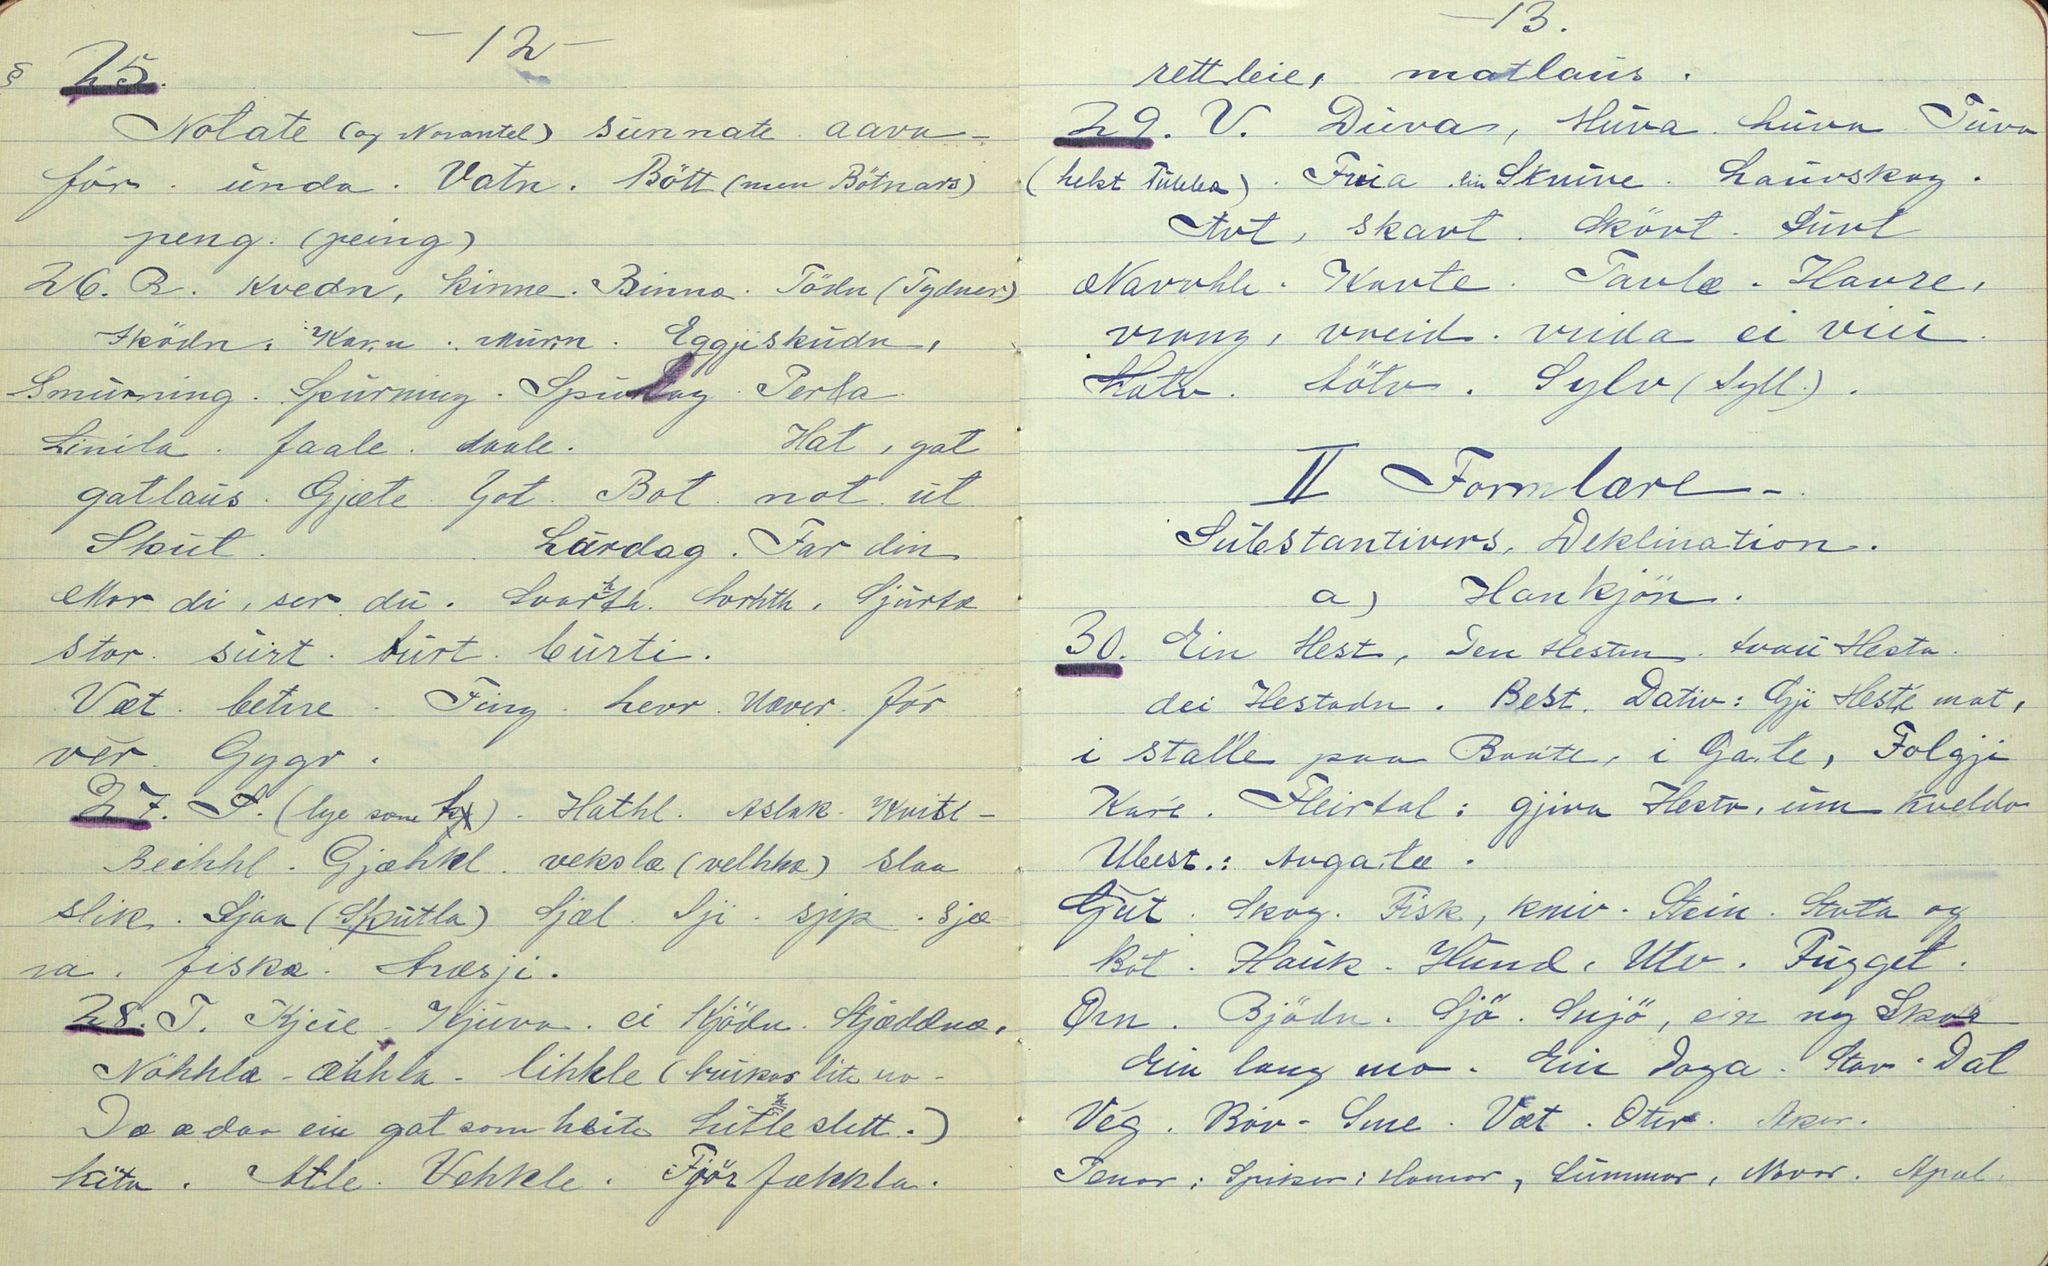 - 12 -
§ 25.
Nolate (og Norantel) sunnate aava-
för. unda. Vatn. Bött (men Bötnars)
peng. (peing)
26. R. Kvedn, kinne. Binna. Tödn (Tydner)
Sködn. Karn. Murn. Eggjiskudn,
Smurning. Spurning. Spurlag. Perla
Linila. faale. daale. Hat, gat
gatlaus. Gjæte. Got. Bot. not. ut
Skut. Laurdag. Far din
Mor di, ser du. Svarth. Sorhth. Gjurta
stor. surt. burt. burti.
Væt. betre. Ting. hevr. Næver. för
ver. Gygr.
27. S. (lye som kj). Hathl. Aslak. Kvisl-
Beihhl. Gjæhhl. veksla (velhha) slaa
slik. Sjaa (Skutla) Sjæl. Sji. sjpp. sjæ
ra. fiska. Træsji.
28. T. Kjeie. Kjuva. ei Kjödn. Stjæddna,
Nöhhla - æhhla - lihkle (brukas lite no-
Dæ æ daa ein gat som heite Litleslett.)
kita. Atle. Vehkle. Fjör fækkla.
- 13.
rettleie, matlaus.
29. V. Duva, Huva. Luva. Tuva
(helst Tubba). Frua. ein Skruve. Lauvskog.
Avt, skavt. Skövt. Luvt
Navrhle. Kavte. Tavle. Havre,
vrang, vreid. vrida ei vrii
Halv. Sölv. Sylv (Syll).
II Formlære -
Substantivers, Deklination.
a) Hankjön.
30. Ein Hest, Den Hesten. tvau Hesta.
dei Hestadn. Best. Dativ: Gji Heste mat,
i stalle paa Baate, i Gate, Folgji
Kare. Fleirtal: gjiva Hesto, um kveldo
Ubest.: Avgate.
Gut. Skog. Fisk, kniv. Stein. Stuta og
Böt. Hauk. Hund, Ulv. Fugget.
Orn. Bjödn. Sjö. Snjö, ein ny Skor
Ein lang mo. Ein Daga. Stav. Dal
Veg. Bör - Sme. Væt. Oter. Aker.
Tenar, Spiker, Hamar, Summar, Navar. Apal.